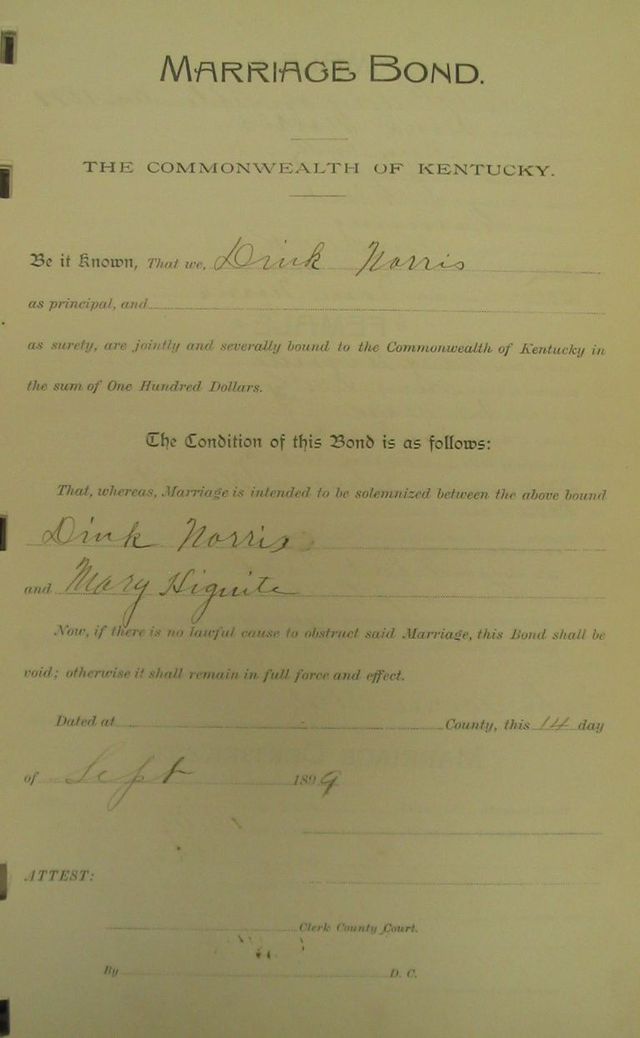 MARRIAGE BOND.
THE COMMONWEALTH OF KENTUCKY.
Be it Known, That we, Dink Norris
as principal, and
as surety, are jointly and severally bound to the Commonwealth of Kentucky in
the sum of One Hundred Dollars.
The Condition of this Bond is as follows:
That, whereas, Marriage is intended to be solemnized between the above bound
Dink Norris
and Mary Hignite
Now, if there is no lawful cause to obstruct said Marriage, this Bond shall be
void; otherwise it shall remain in full force and effect.
Dated at County, this 14 day
of Sept 1899
ATTEST:
Clerk County Court.
By D. C.